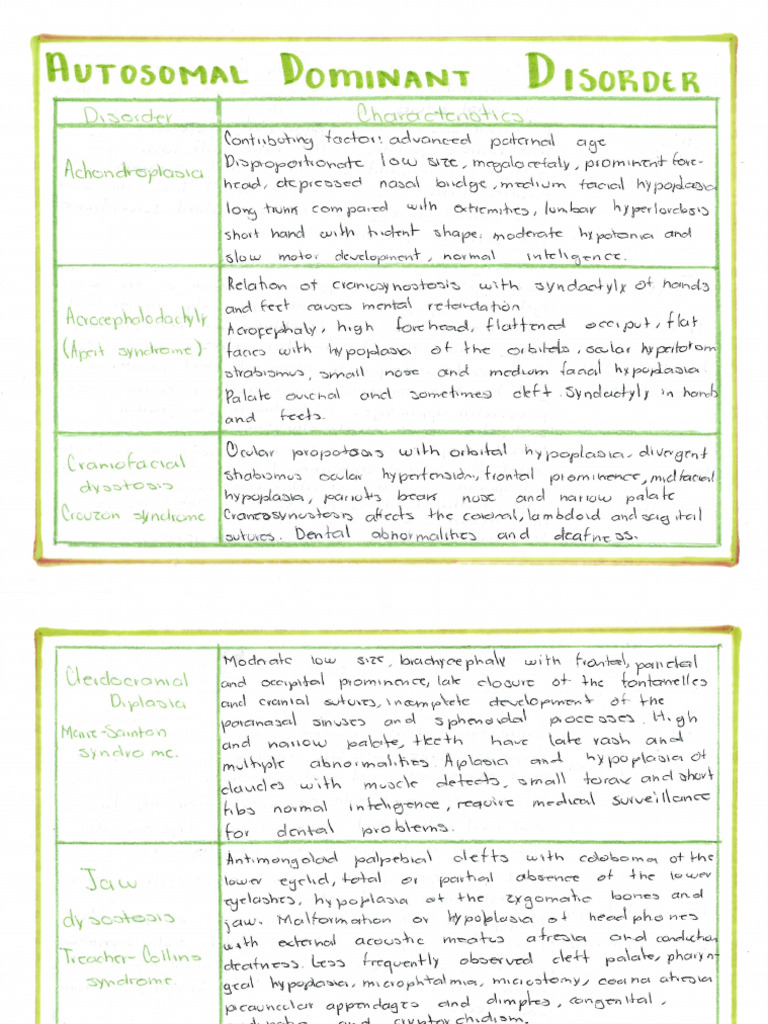 AUTOSOMAL DOMINANT DISORDER
Disorder
Characteristics
Achondroplasia
Contributing factor: advanced paternal age
Disproportionate low size, megalocefaly, prominent fore-
head, depressed nasal bridge, medium facial hypoplasia
long trunk compared with extremities, lumbar hyperlordosis
short hand with trident shape: moderate hypotonia and
slow motor development, normal inteligence.
Acrocephalodactyly
(Apert syndrome)
Relation of craneosynostosis with syndactyly of hands
and feet causes mental retardation
Acrocephaly, high forehead, flattened occiput, flat
facies with hypoplasia of the orbitels, ocular hypertelorism
strabismus, small nose and medium facial hypoplasia
Palate ovicnal and sometimes cleft. Syndactyly in hands
and feets.
Craniofacial
dysotosis
Crouzon syndrome
Ocular propotosis with orbital hypoplasia, divergent
strabismus ocular hypertension, frontal prominence, midfacial
hypoplasia, parrots beak nose and narrow palate
Craneosynostosis affects the coronal, lambdoid and sagittal
sutures. Dental abnormalities and deafness.
Cleidocranial
Diplasia
Marie-Sainton
syndrome.
Modrate low size, brachycephaly with frontal, parietal
and occipital prominence, late closure of the fontanelles
and cranial sutures, incomplete development of the
paranasal sinuses and sphenoidal processes. High
and narrow palate, theeth have late rash and
multiple abnormalities. Aplasia and hypoplasia of
clavicles with muscle defects, small torax and short
ribs normal inteligence, require medical surveillance
for dental problems.
Jaw
dysostosis
Treacher-Collins
syndrome.
Antimongoloid palpebral clefts with coloboma of the
lower eyelid, total or partial absence of the lower
eyelashes, hypoplasia of the zygomatic bones and
jaw. Malformation or hypoplasia of headphones
with external acoustic meatus atresia and conduction
deafness. Less frequently observed cleft palate, pharyn-
geal hypoplasia, microphtalmia, microstomy, coana atresia
preauricular appendages and dimples, congenital,
and cryptorchidism.